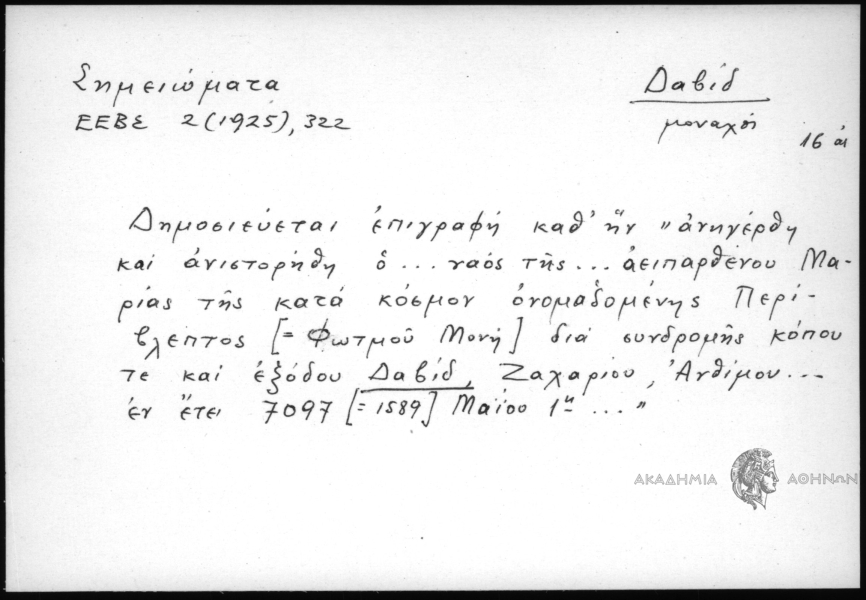 Σημειώματα
ΕΕΒΣ 2 (1925), 322
Δαβίδ
μοναχός
16 αι
Δημοσιεύεται ἐπιγραφή καθ' ἥν "ἀνηγέρθη
καί ἀνιστορήθη ὁ ... ναός τῆς ... ἀειπαρθένου Μα-
ρίας τῆς κατά κόσμον ὀνομαδομένης Περί-
βλεπτος [= Φωτμοῦ Μονή] διά συνδρομῆς κόπου
τε καί ἐξόδου Δαβίδ, Ζαχαρίου, Ἀνθίμου ...
ἐν ἔτει 7097 [= 1589] Μαΐου 1η ... "
ΑΚΑΔΗΜΙΑ ΑΘΗΝΩΝ